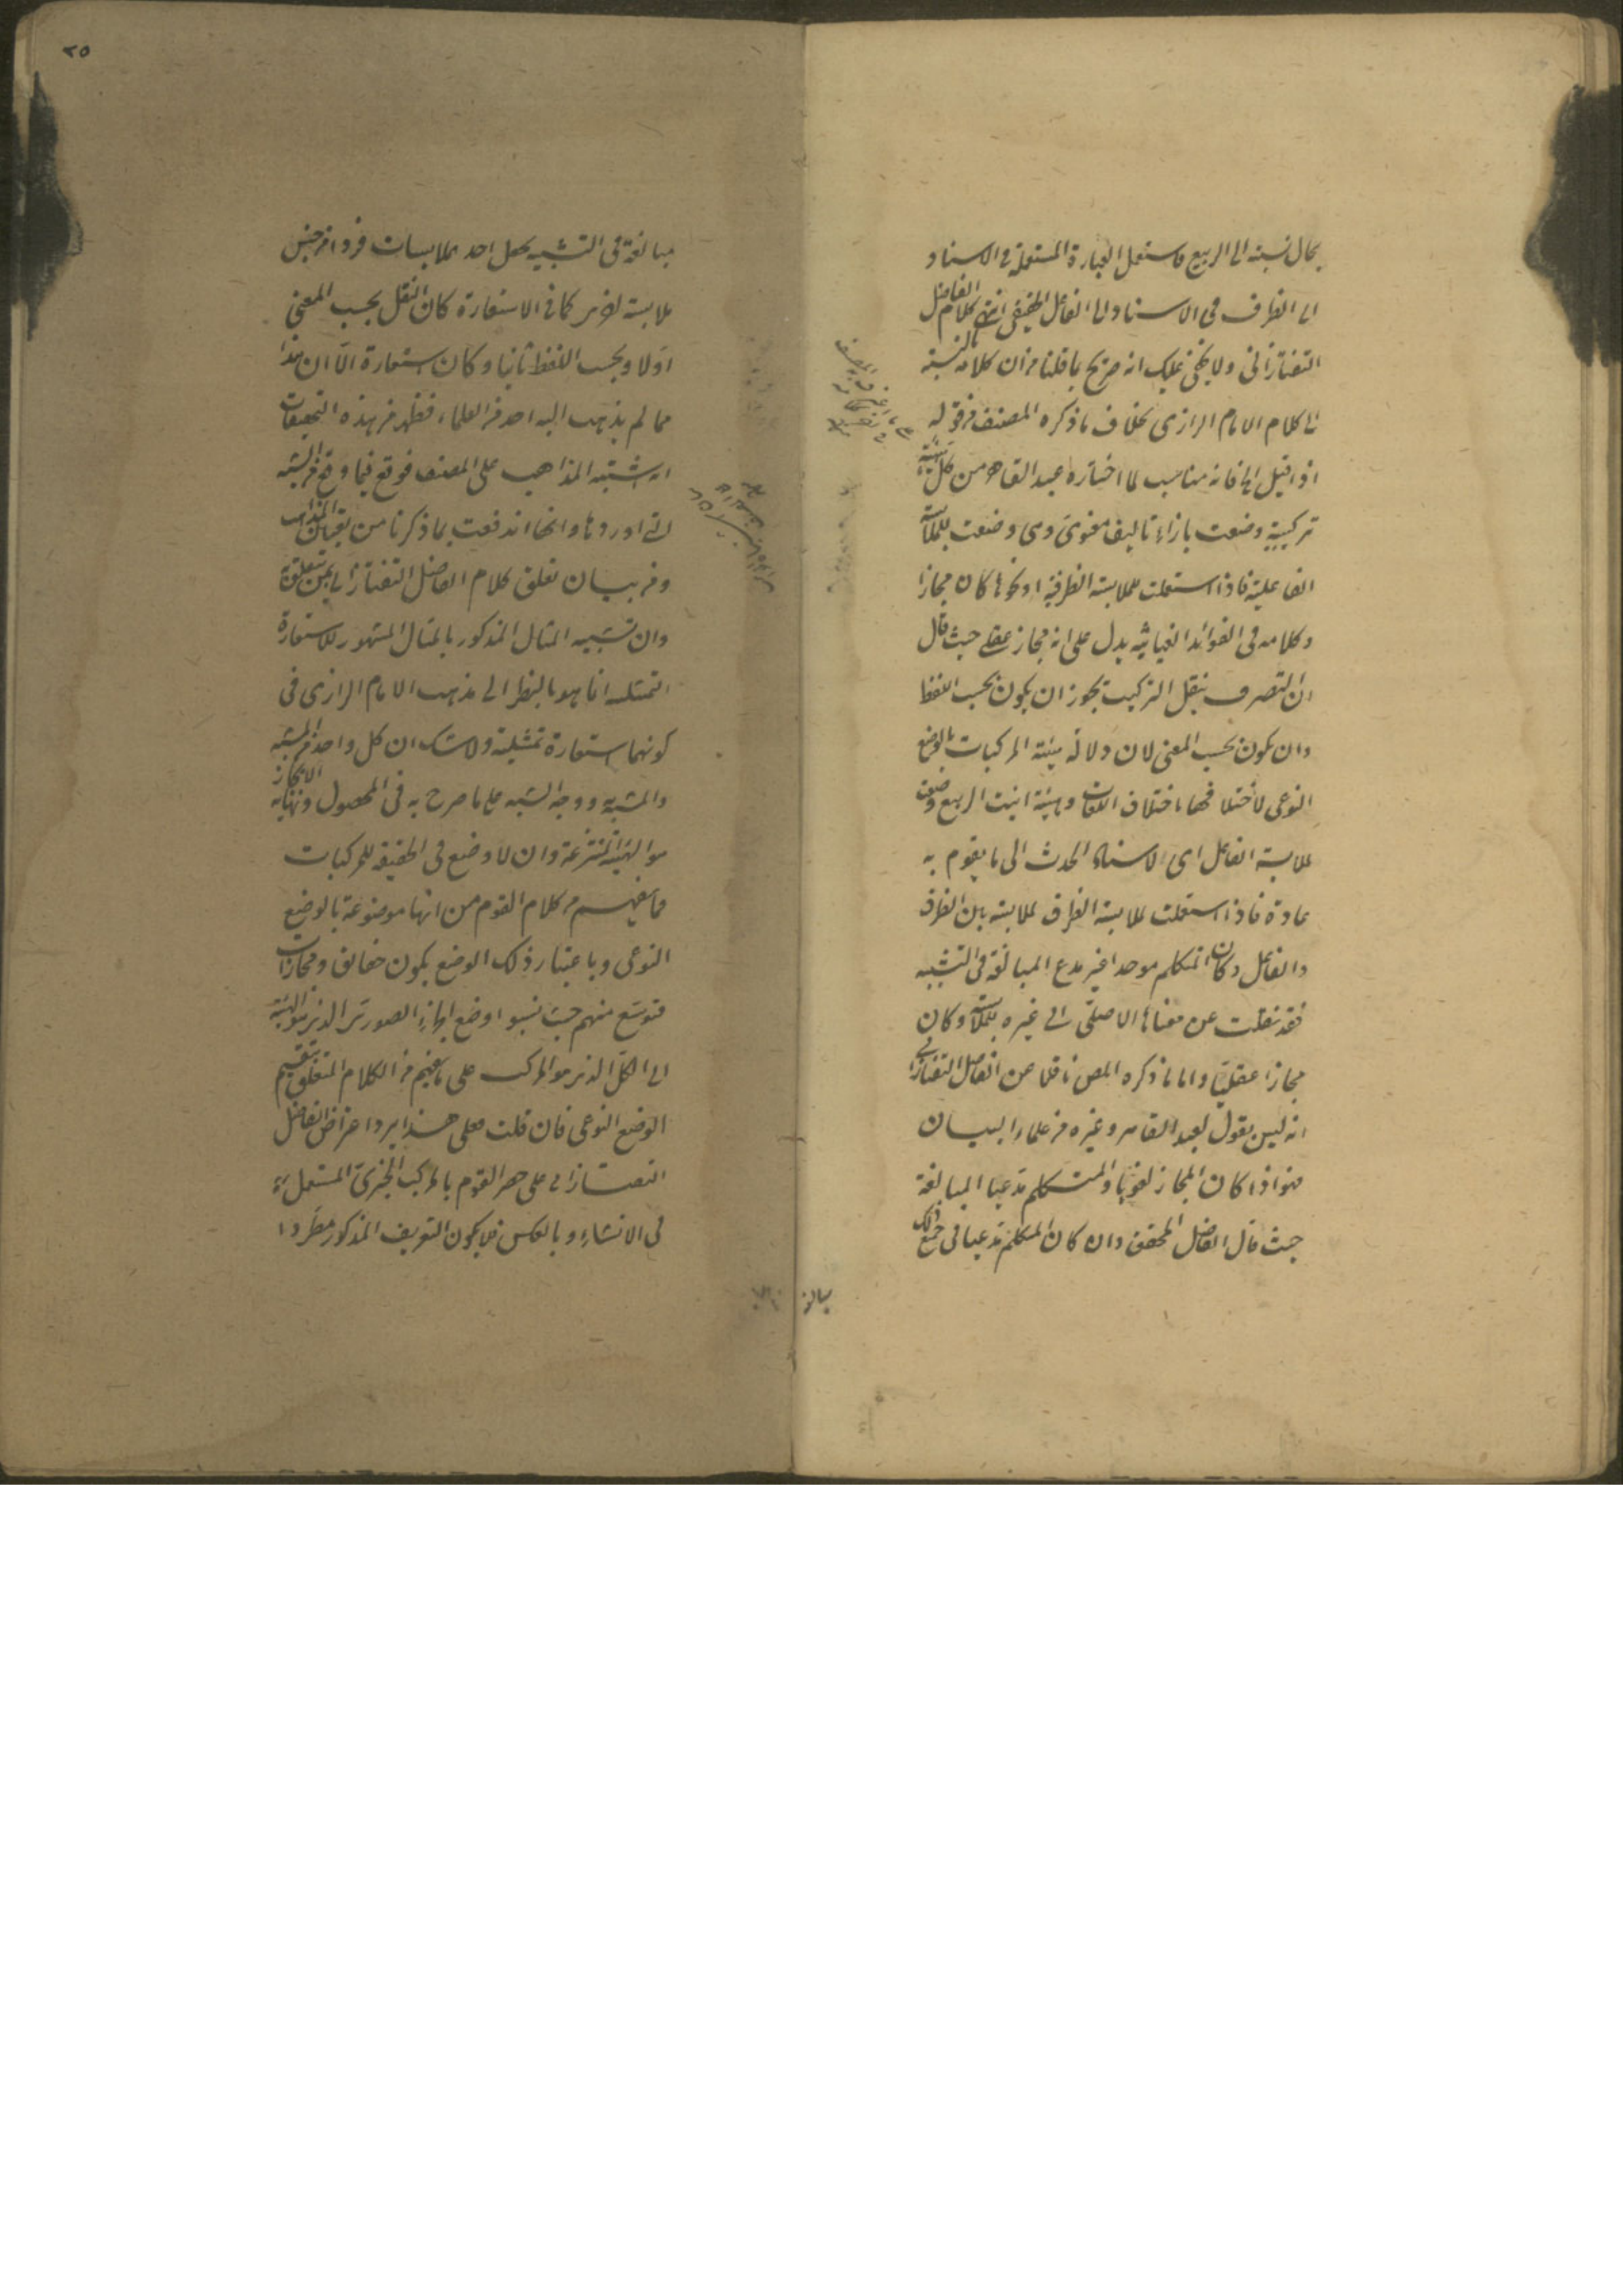 بحال نسبته الى الربيع فاستعمل العبارة المستعملة في الاسناد
الى الظرف في الاسناد الى الفاعل الحقيقي انتهى كلام الفاضل
التفتازاني ولا يخفى عليك انه صريح بما قلنا من ان كلامه بالنسبة
الى كلام الامام الرازي بخلاف ما ذكره المصنف من قوله
اذا قيل الخ فانه مناسب لما اختاره عبد القاهر من كل هيئة
تركيبية وضعت بازاء تاليف معنوى وهى وضعت لملابسة
الفاعلية فاذا استعملت لملابسة الظرفية او نحوها كان مجازا
وكلامه في الفوائد الغياثية يدل على انه مجاز عقلي حيث قال
ان التصرف بنقل التركيب يجوز ان يكون بحسب اللفظ
وان يكون بحسب المعنى لان دلالة هيئة المركبات بالوضع
النوعى لاختلافها باختلاف اللغات وهيئة انبت الربيع وضعت
لملابسة الفاعل اى لاسناد الحدث الى ما يقوم به
عادة فاذا استعملت لملابسة الظرف لملابسة بين الظرف
والفاعل وكان المتكلم موحدا غير مدع المبالغة في التشبيه
فقد نقلت عن معناها الاصلى الى غيره لملابسة وكان
مجازا عقليا واما ما ذكره المص ناقلا عن الفاضل التفتازاني
انه ليس بقول لعبد القاهر وغيره من علماء البيان
فهو اذا كان المجاز لغويا والمتكلم مدعيا المبالغة
حيث قال الفاضل المحقق وان كان المتكلم مدعيا في جميع ذلك
مبالغة
٢٥
مبالغة في التشبيه بجعل احد ملابسات فردا من جنس
ملابسة اخرى كما في الاستعارة كان النقل بحسب المعنى
اولا وبحسب اللفظ ثانيا وكان استعارة الا ان هذا
مما لم يذهب اليه احد من العلماء فظهر من هذه التحقيقات
انه اشتبه المذاهب على المصنف فوقع فيما وقع من الشبه
التي اوردها وانها اندفعت بما ذكرنا من تعيين المذاهب
ومن بيان تعلق كلام الفاضل التفتازاني بمن يتعلق به
وان تشبيه المثال المذكور بالمثال المشهور للاستعارة
التمثيلية انما هو بالنظر الى مذهب الامام الرازي في
كونهما استعارة تمثيلية ولا شك ان كل واحد من المشبه
والمشبه به ووجه الشبه على ما صرح به في المحصول ونهاية الايجاز
هو الهيئة المنتزعة وان لا وضع في الحقيقة للمركبات
فما يفهم من كلام القوم من انها موضوعة بالوضع
النوعى وباعتبار ذلك الوضع يكون حقائق ومجازات
فتوسع منهم حيث نسبوا وضع الجزء الصورى الذى هو الهيئة
الى الكل الذى هو المركب على ما يفهم من الكلام المتعلق بتقسيم
الوضع النوعى فان قلت فعلى هذا يرد اعتراض الفاضل
التفتازاني على حصر القوم بالمركب الخبرى المستعمل
في الانشاء وبالعكس فلا يكون التعريف المذكور مطردا